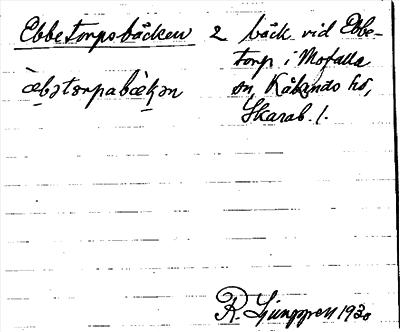 Ebbetorpsbäcken 2 bäck vid Ebbe-
torp i Mofalla
sn, Kåkinds hd,
Skarab. l.
æ̀bətɔrpabæ̀kən
R. Ljunggren 1930